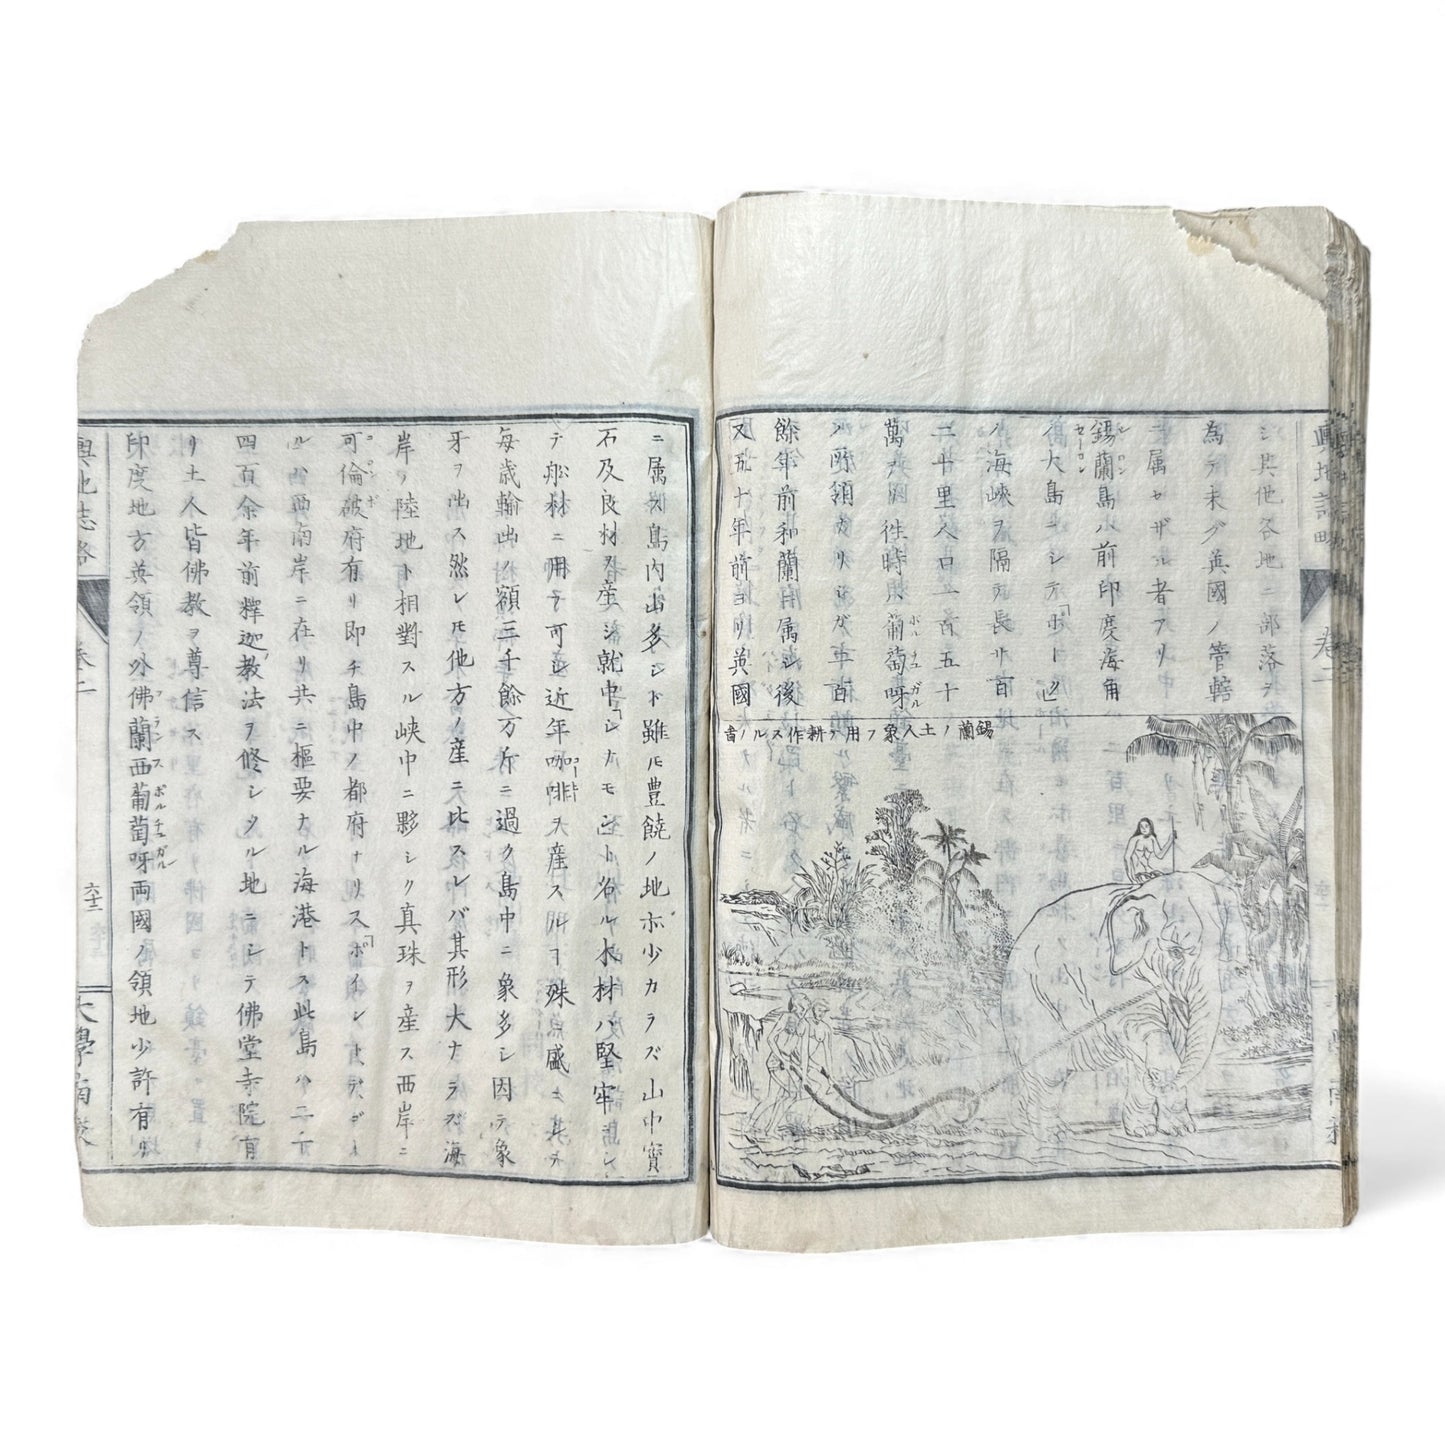 輿地誌略
卷二
シ其他各地ニ部落ヲ
為テ未ダ英國ノ管轄
ニ属セザル者アリ
錫蘭島ハ前印度海角
セーロン
ノ海峡ヲ隔テ長サ百
二十里人口一百五十
萬 往時葡萄呀
ポルチュガル
ノ所領タリシガ二百
餘年前和蘭ニ属シ後
又五十年前ヨリ英國
錫蘭ノ土人象ヲ用テ耕作スルノ啚
ニ属ス島内山多シト雖モ豊饒ノ地亦少カラズ山中寳
石及良材ヲ産シ就中「シナモン」ト名ル木材ハ堅牢ニシ
テ舩材ニ用テ可シ近年咖啡ヲ産ス 殊ニ盛ニ其
コーヒー
毎歳輸出ノ額三千餘万斤ニ過グ島中ニ象多シ因テ象
牙ヲ出ス然レモ他方ノ産ニ比スレバ其形大ナラズ海
岸ヲ陸地ト相對スル峡中ニ夥シク真珠ヲ産ス西岸ニ
可倫破府有リ即チ島中ノ都府ナリ
コロンボ
ルハ西南岸ニ在リ共ニ樞要ナル海港トス此島ハ二千
四百余年前釋迦教法ヲ修シタル地ニシテ佛堂寺院有
リ土人皆佛教ヲ尊信ス
印度地方英領ノ外佛蘭西葡萄呀両國ノ領地少許有リ
フランス ポルチュガル
輿地誌略
卷二
六十二
大學南校